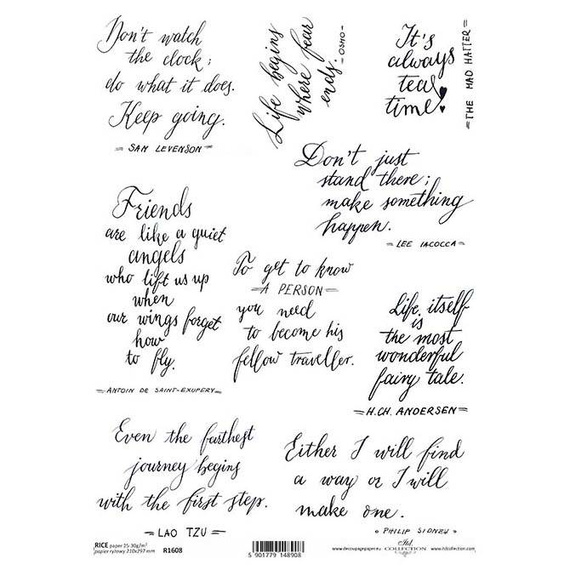 Don't watch
the clock;
do what it does.
Keep going.
SAM LEVENSON
Life begins
where fear
ends.
OSHO
It's
always
tea
time!
THE MAD HATTER
Don't just
stand there;
make something
happen.
LEE IACOCCA
Friends
are like a quiet
angels
who lift us up
when
our wings forget
how
to fly.
ANTOIN DE SAINT-EXUPERY
To get to know
A PERSON
you need
to become his
fellow traveller.
Life itself
is
the most
wonderful
fairy tale.
H.CH. ANDERSEN
Even the farthest
journey begins
with the first step.
LAO TZU
Either I will find
a way or I will
make one.
PHILIP SIDNEY
RICE paper 25-30g/m²
papier ryżowy 210x297 mm R1608
5 901779 148908
www.decoupagepaper.eu
COLLECTION
www.itdcollection.com